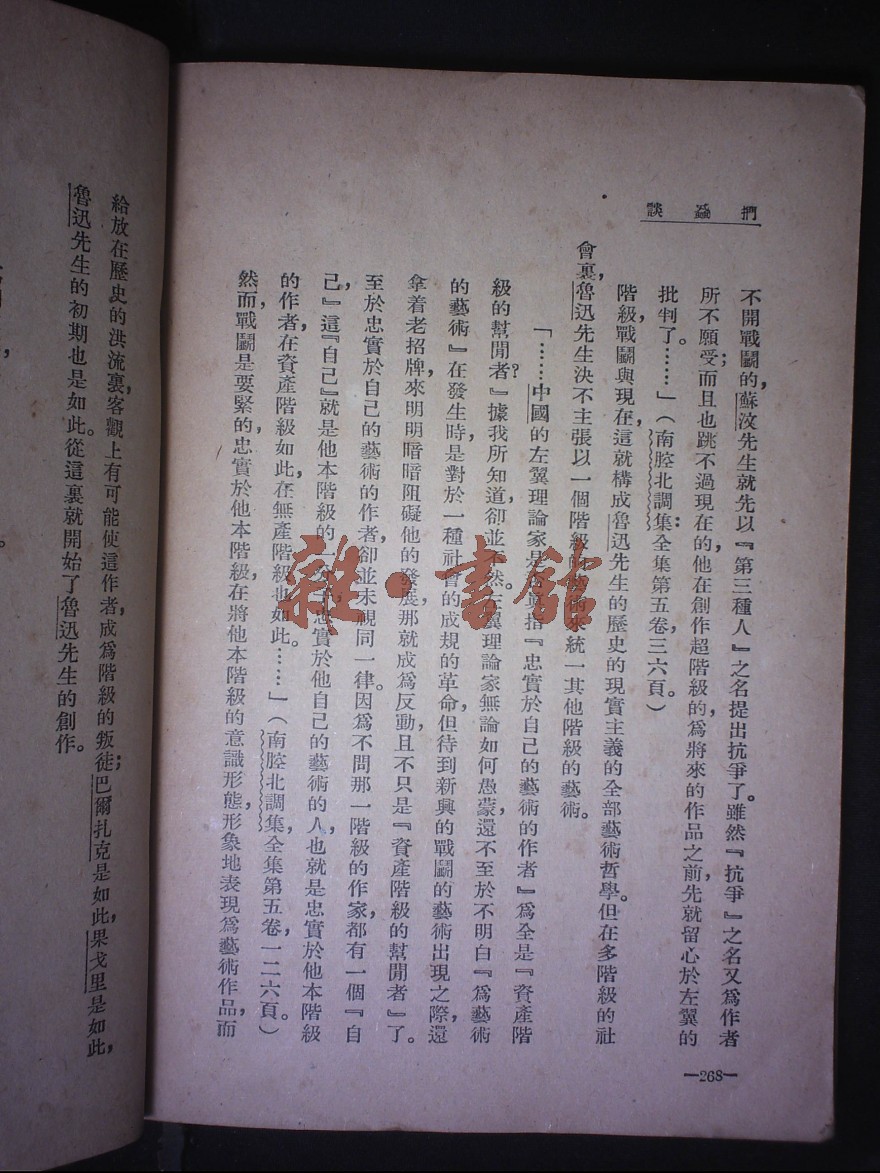 捫蝨談
不開戰鬪的，蘇汶先生就先以『第三種人』之名提出抗爭了。雖然『抗爭』之名又爲作者
所不願受；而且也跳不過現在的，他在創作超階級的，爲將來的作品之前，先就留心於左翼的
批判了。……」（南腔北調集：全集第五卷，三六頁。）
階級，戰鬪與現在，這就構成魯迅先生的歷史的現實主義的全部藝術哲學。但在多階級的社
會裏，魯迅先生決不主張以一個階級的藝術來統一其他階級的藝術。
「……中國的左翼理論家是否眞指『忠實於自己的藝術的作者』爲全是『資產階
級的幫閒者』？據我所知道，卻並不然。左翼理論家無論如何愚蒙，還不至於不明白『爲藝術
的藝術』在發生時，是對於一種社會的成規的革命，但待到新興的戰鬪的藝術出現之際，還
拿着老招牌，來明明暗暗阻礙他的發展，那就成爲反動，且不只是『資產階級的幫閒者』了。
至於忠實於自己的藝術的作者，卻並未視同一律。因爲不問那一階級的作家，都有一個『自
己』，這『自己』就是他本階級的一分子，忠實於他自己的藝術的人，也就是忠實於他本階級
的作者，在資產階級如此，在無產階級也如此。……」（南腔北調集，全集第五卷，一二六頁。）
然而，戰鬪是要緊的，忠實於他本階級，在將他本階級的意識形態，形象地表現爲藝術作品，而
—268—
給放在歷史的洪流裏，客觀上有可能使這作者，成爲階級的叛徒；巴爾扎克是如此，果戈里是如此，
魯迅先生的初期也是如此。從這裏就開始了魯迅先生的創作。
雜·書館